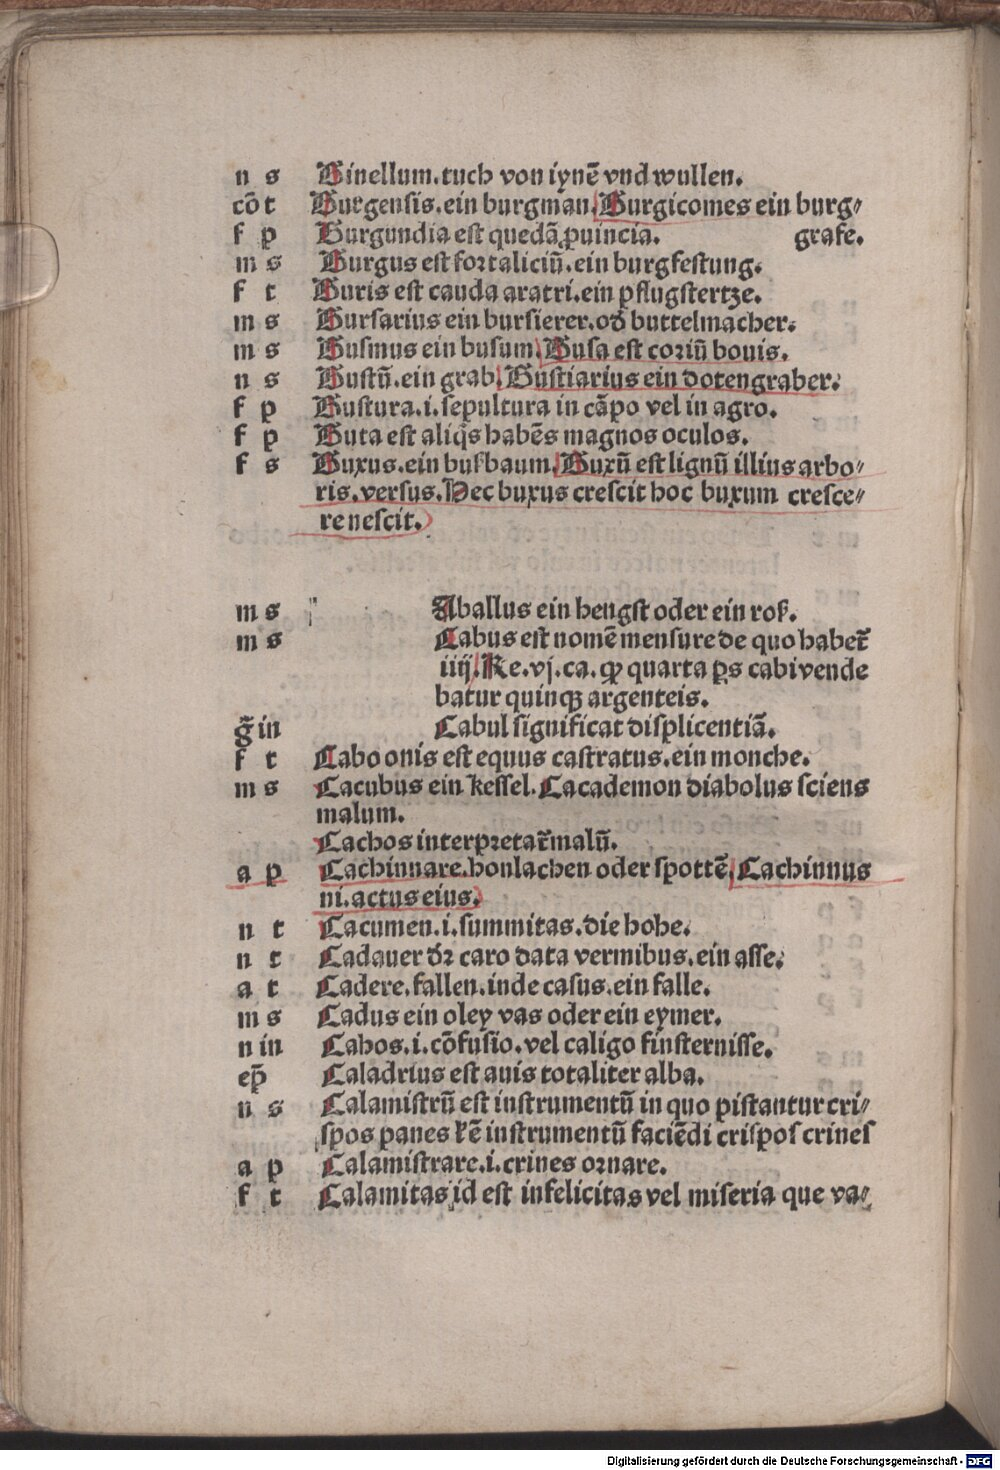 n s Binellum.tuch von iynē vnd wullen.
cōt Burgensis.ein burgman.Burgicomes ein burg⸗
f p Burgundia est quedā ꝓuincia. grafe.
m s Burgus est fortaliciū.ein burgfestung.
f t Buris est cauda aratri.ein pflugstertze.
m s Bursarius ein bursierer.od̄ buttelmacher.
m s Busmus ein busum.Busa est coriū bouis.
n s Bustū.ein grab.Bustiarius ein dotengraber.
f p Bustura.i.sepultura in cāpo vel in agro.
f p Buta est aliq̄s habēs magnos oculos.
f s Buxus.ein buſbaum.Buxū est lignū illius arbo⸗
ris.versus.Hec buxus crescit hoc buxum cresce⸗
re nescit.
m s Aballus ein hengst oder ein roß.
m s Cabus est nomē mensure de quo habet̄
iiij.Re.vj.ca.ꝙ quarta ꝑs cabi vende
batur quinqꝫ argenteis.
ḡ in Cabul significat displicentiā.
f t Cabo onis est equus castratus.ein monche.
m s Cacubus ein kessel.Cacademon diabolus sciens
malum.
Cachos interpretat̄ malū.
a p Cachinnare.honlachen oder spottē.Cachinnus
ni.actus eius.
n t Cacumen.i.summitas.die hohe.
n t Cadauer dr̄ caro data vermibus.ein asse.
a t Cadere.fallen.inde casus.ein falle.
m s Cadus ein oley vas oder ein eymer.
n in Cahos.i.cōfusio.vel caligo finsternisse.
ep̄ Caladrius est auis totaliter alba.
n s Calamistrū est instrumentū in quo pistantur cri⸗
spos panes ł ē instrumentū faciēdi crispos crines
a p Calamistrare.i.crines ornare.
f t Calamitas id est infelicitas vel miseria que va⸗
Digitalisierung gefördert durch die Deutsche Forschungsgemeinschaft - DFG